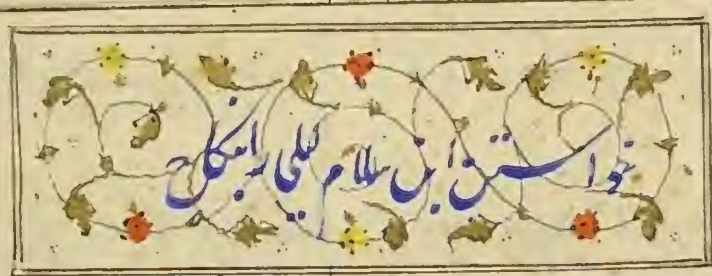 خواستن ابن سلام لیلی را بنکاح